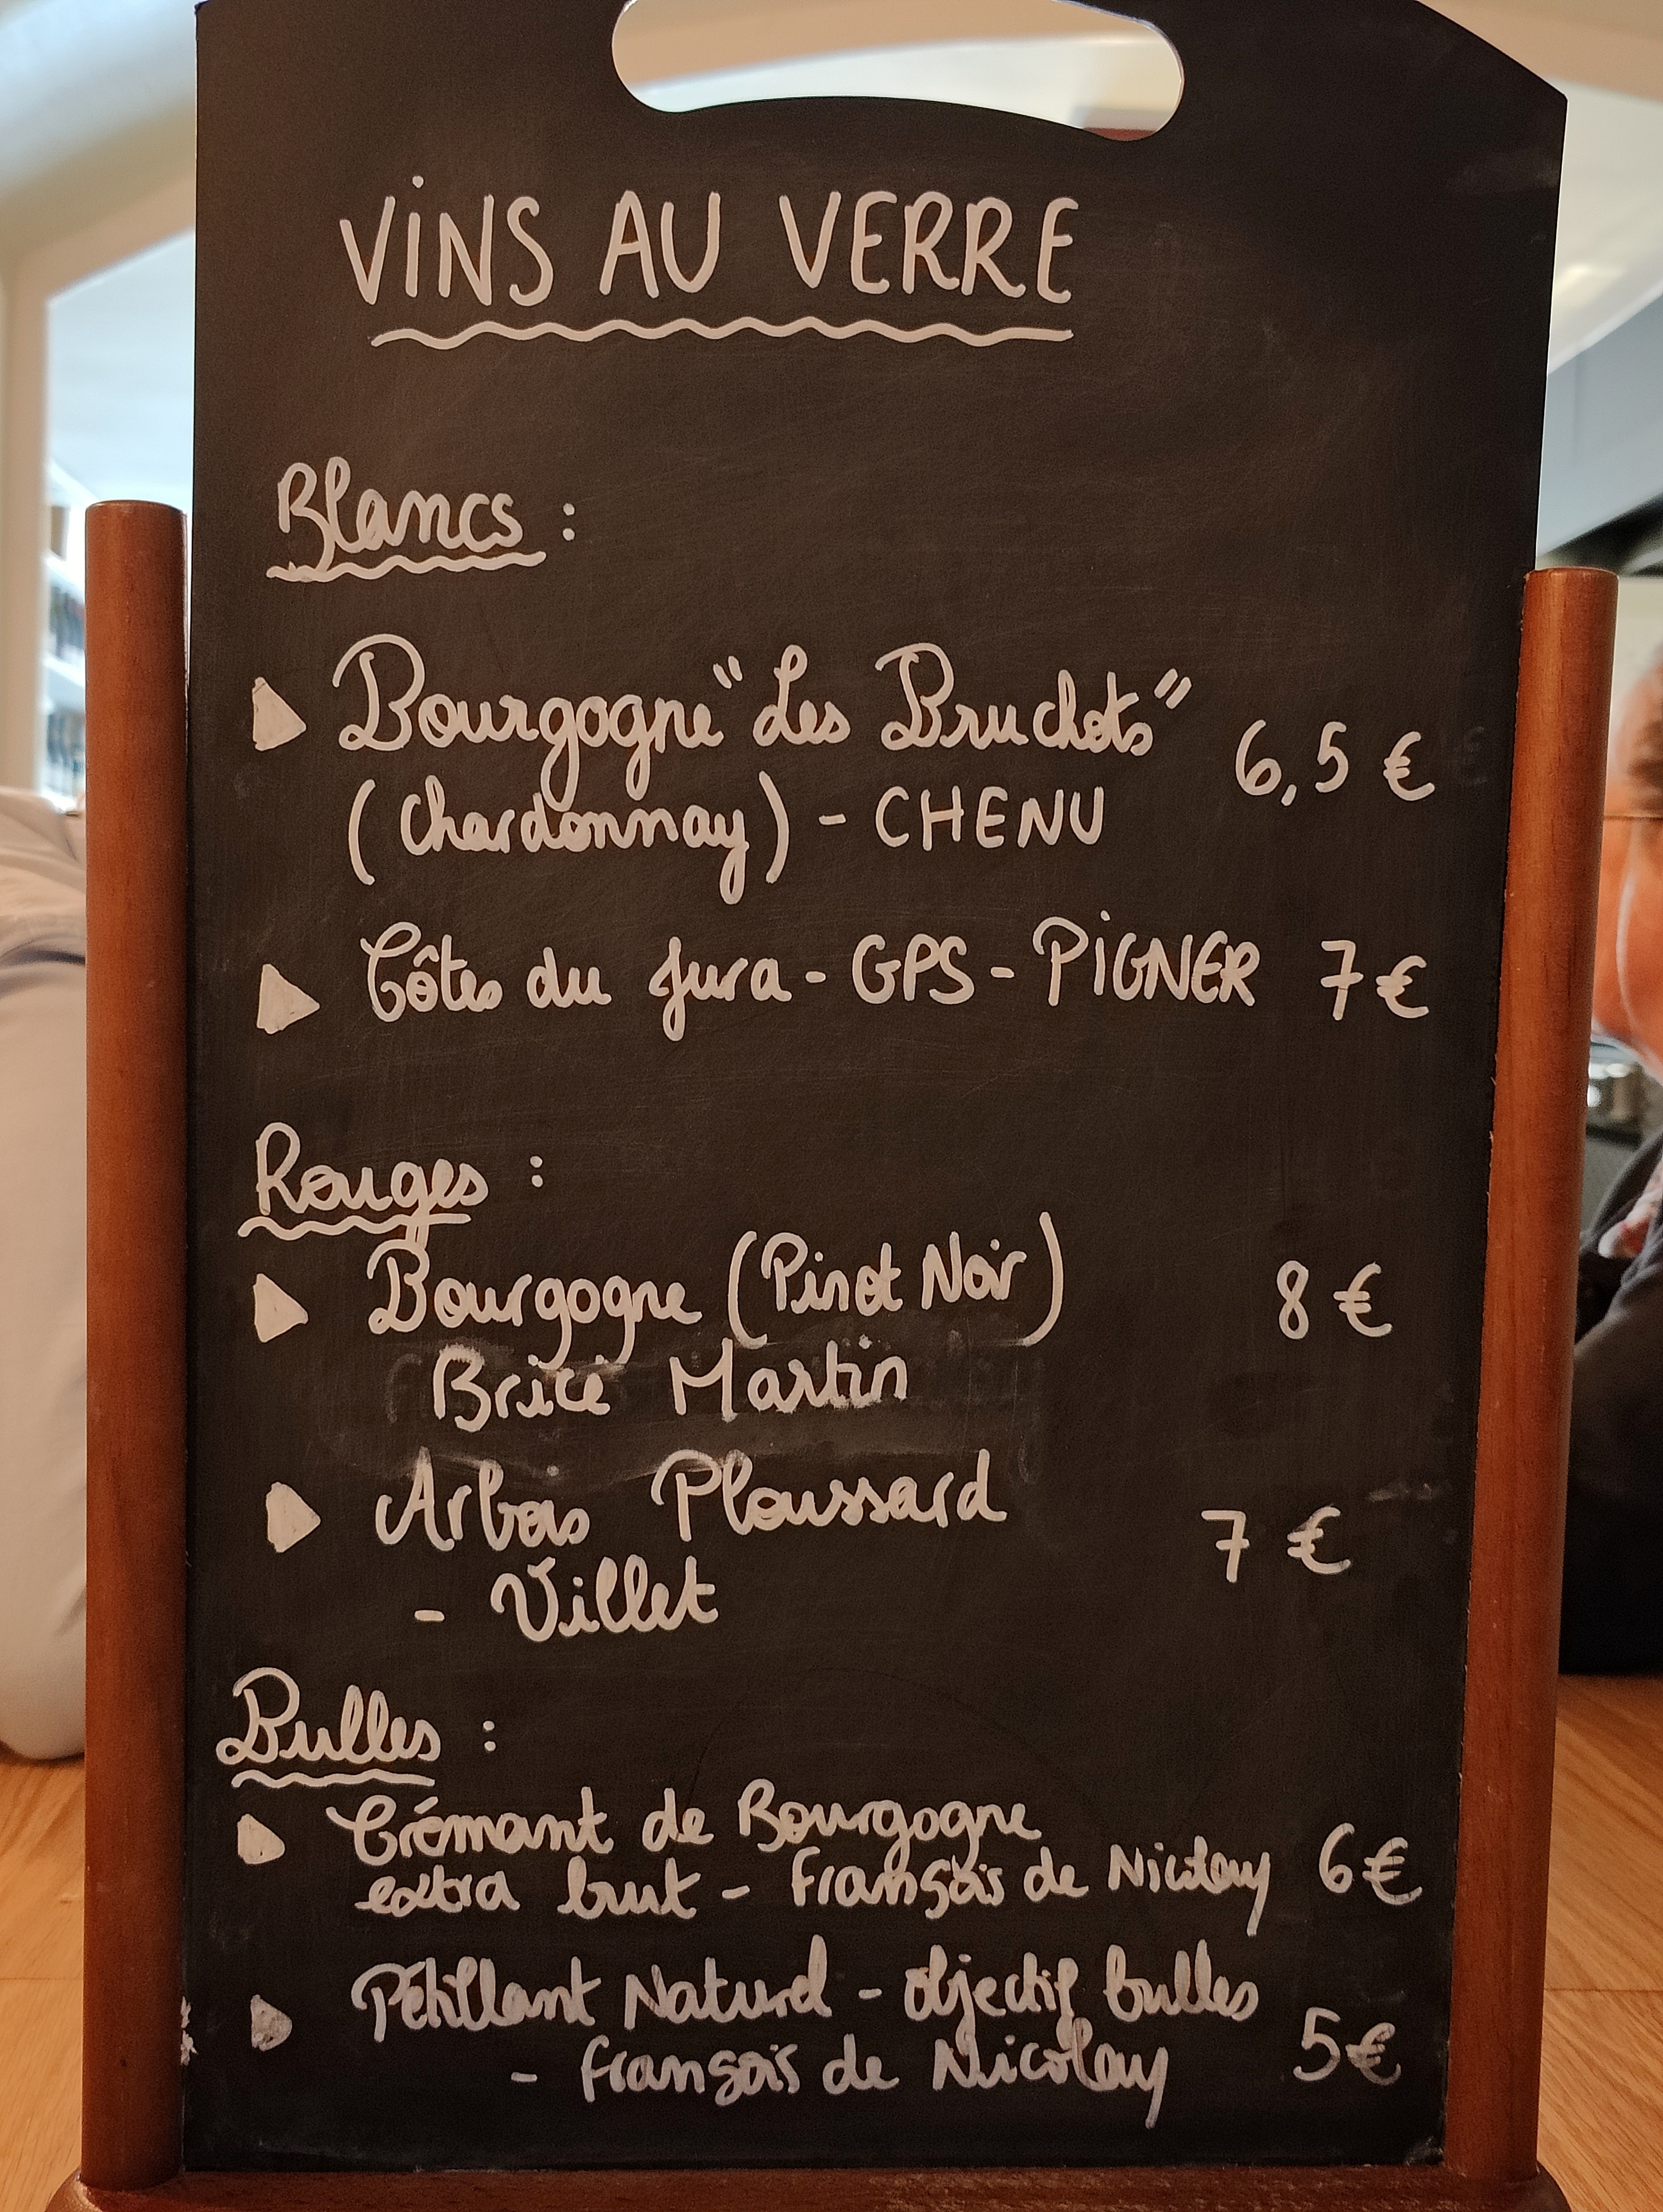 ViNS AU VERRE
Blancs :
Bourgogne "Les Bruchots" 6,5 €
(Chardonnay) - CHENU
Côtes du Jura - GPS - PiGNER 7€
Rouges :
Bourgogne (Pinot Noir) 8 €
Brice Martin
Arbois Ploussard 7 €
- Villet
Bulles :
Crémant de Bourgogne
extra brut - François de Nicolay 6€
Pétillant Naturel - objectif bulles
- François de Nicolay 5€